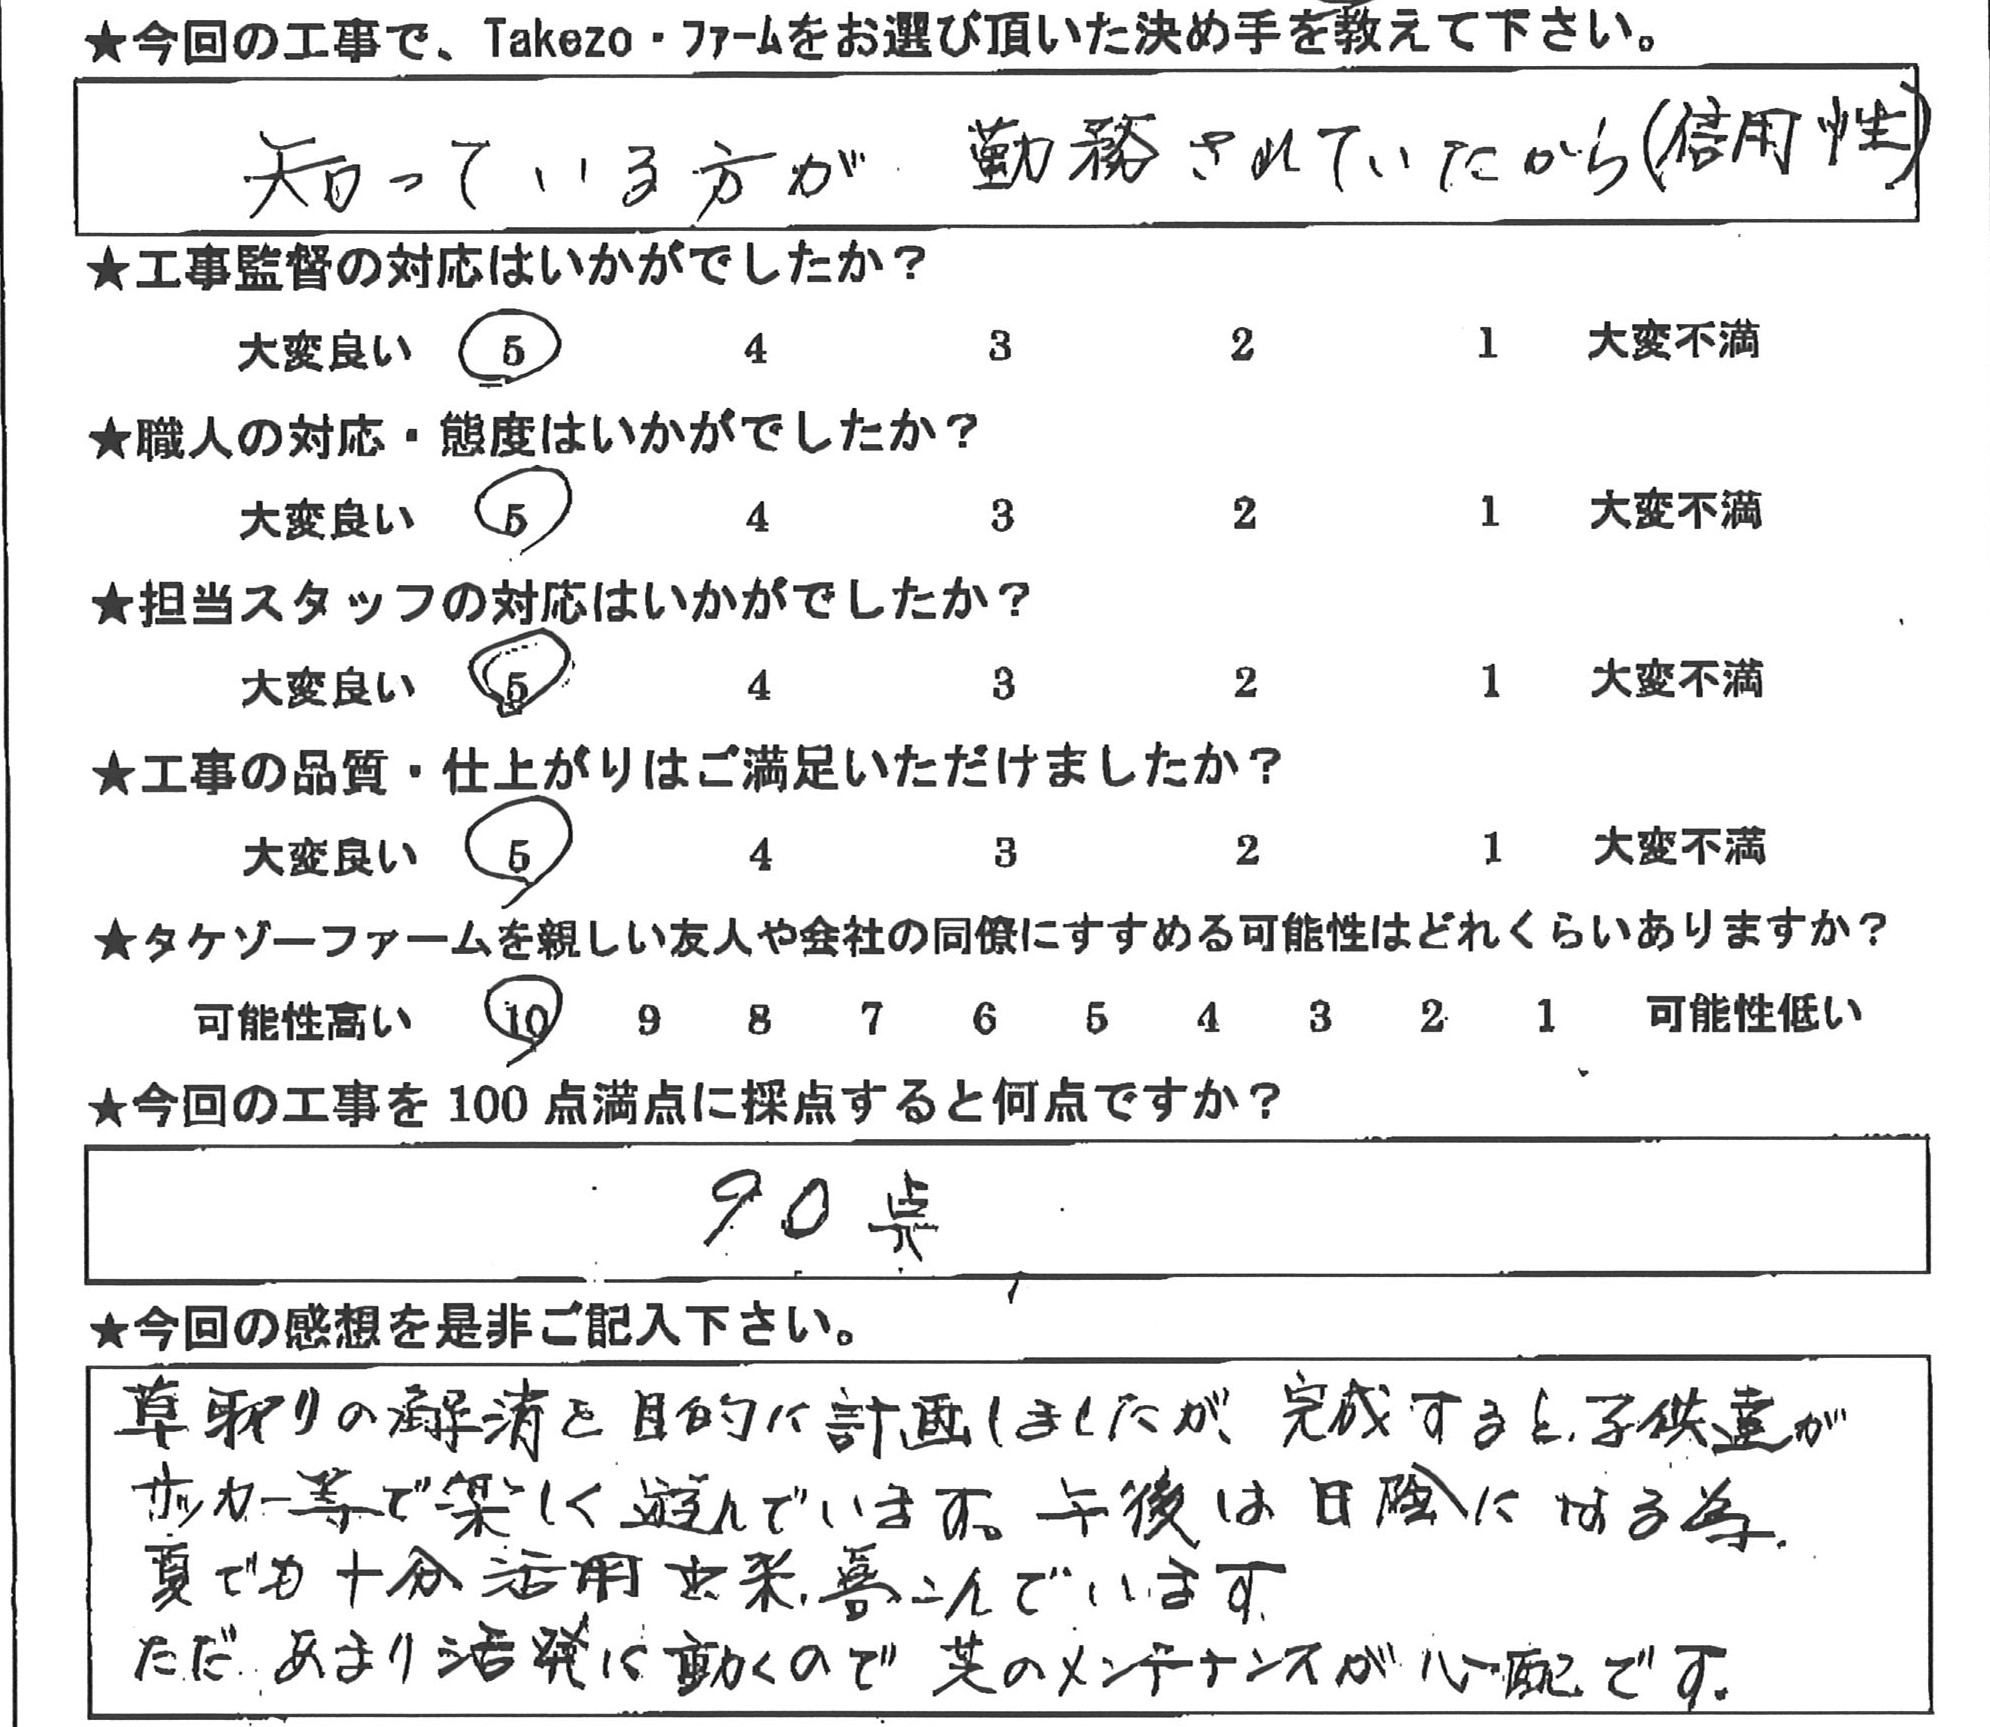 ★今回の工事で、Takezo・ファームをお選び頂いた決め手を教えて下さい。
知っている方が 勤務されていたから(信用性)
★工事監督の対応はいかがでしたか？
大変良い 5 4 3 2 1 大変不満
★職人の対応・態度はいかがでしたか？
大変良い 5 4 3 2 1 大変不満
★担当スタッフの対応はいかがでしたか？
大変良い 5 4 3 2 1 大変不満
★工事の品質・仕上がりはご満足いただけましたか？
大変良い 5 4 3 2 1 大変不満
★タケゾーファームを親しい友人や会社の同僚にすすめる可能性はどれくらいありますか？
可能性高い 10 9 8 7 6 5 4 3 2 1 可能性低い
★今回の工事を 100 点満点に採点すると何点ですか？
90点
★今回の感想を是非ご記入下さい。
草取りの解消を目的に計画しましたが、完成すると、子供達が
サッカー等で楽しく遊んでいます。午後は日陰になる為、
夏でも十分活用出来、喜こんでいます。
ただ あまり活発に動くので 芝のメンテナンスが心配です。